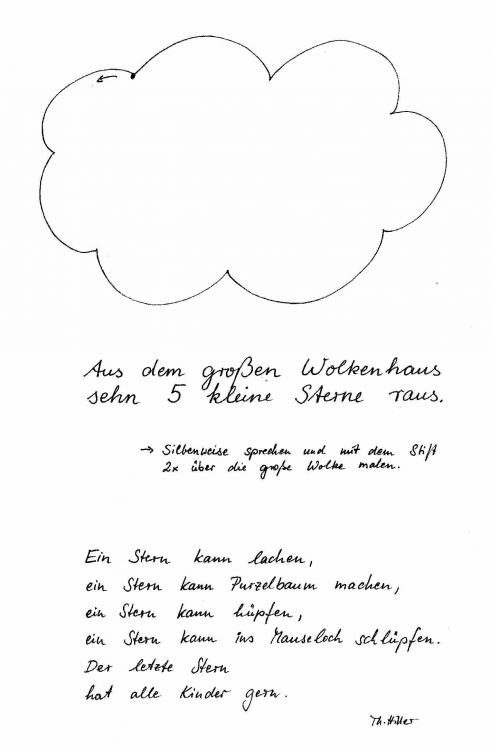 Aus dem großen Wolkenhaus
sehn 5 kleine Sterne raus.
→ Silbenweise sprechen und mit dem Stift
2x über die große Wolke malen.
Ein Stern kann lachen,
ein Stern kann Purzelbaum machen,
ein Stern kann hüpfen,
ein Stern kann ins Mauseloch schlüpfen.
Der letzte Stern
hat alle Kinder gern.
Th. Hiller